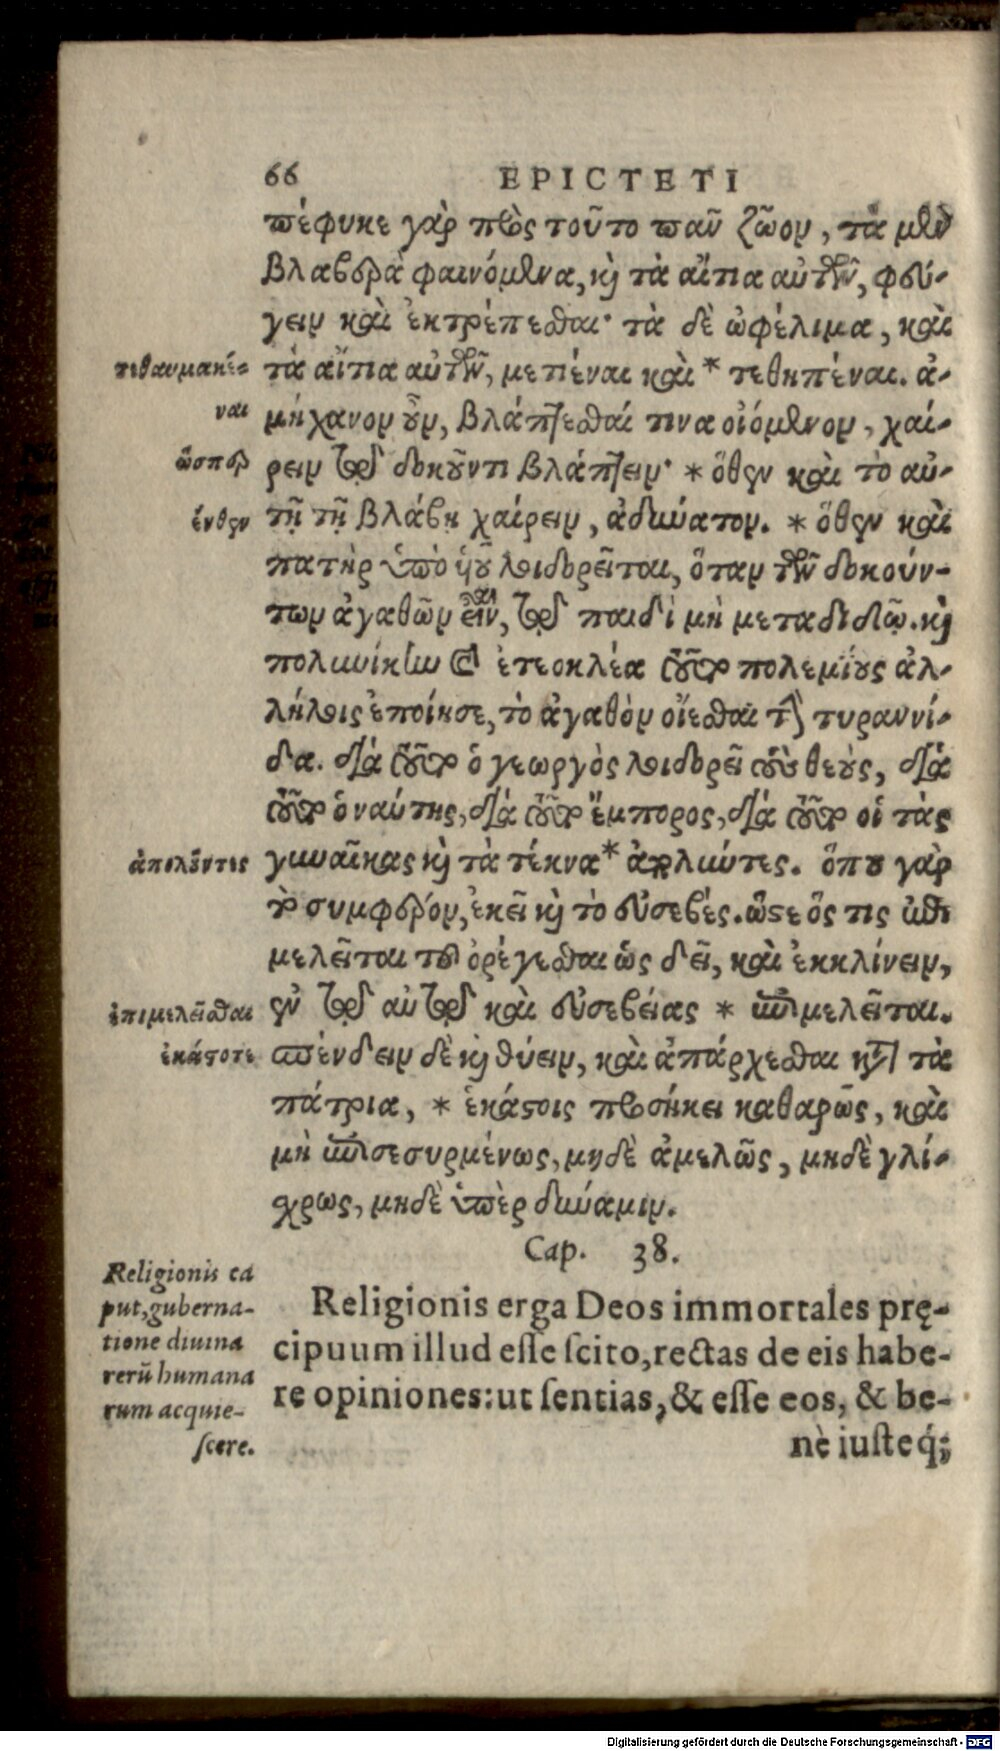 66 EPICTETI
πέφυκε γὰρ πρὸς τοῦτο παῦ ζῶον, τὰ μὲν
βλαβερὰ φαινόμενα, καὶ τὰ αἴτια αὐτῶν, φεύ-
γειν καὶ ἐκτρέπεσθαι· τὰ δὲ ὠφέλιμα, καὶ
τεθαυμακέ- τὰ αἴτια αὐτῶν, μετιέναι καὶ * τεθηπέναι. ἀ-
ναι μήχανον οὖν, βλάπτεσθαί τινα οἰόμενον, χαί-
ὥσπερ ρειν τῷ δοκοῦντι βλάπτειν· * ὅθεν καὶ τὸ αὐ-
ἔνθεν τῇ τῇ βλάβῃ χαίρειν, ἀδύνατον. * ὅθεν καὶ
πατὴρ ὑπὸ υἱοῦ λοιδορεῖται, ὅταν τῶν δοκούν-
των ἀγαθῶν εἶναι, τῷ παιδὶ μὴ μεταδιδῷ. καὶ
πολυνίκην καὶ ἐτεοκλέα τοῦτο πολεμίους ἀλ-
λήλοις ἐποίησε, τὸ ἀγαθὸν οἴεσθαι τὴν τυραννί-
δα. διὰ τοῦτο ὁ γεωργὸς λοιδορεῖ τοὺς θεοὺς, διὰ
τοῦτο ὁ ναύτης, διὰ τοῦτο ἔμπορος, διὰ τοῦτο οἱ τὰς
ἀπολοῦντες γυναῖκας καὶ τὰ τέκνα * ἀπολλύντες. ὅπου γὰρ
τὸ συμφέρον, ἐκεῖ καὶ τὸ εὐσεβές. ὥστε ὅς τις ἐπι
μελεῖται τοῦ ὀρέγεσθαι ὡς δεῖ, καὶ ἐκκλίνειν,
ἐπιμελεῖσθαι ἐν τῷ αὐτῷ καὶ εὐσεβείας * ἐπιμελεῖται.
ἑκάστοτε σπένδειν δὲ καὶ θύειν, καὶ ἀπάρχεσθαι κατὰ τὰ
πάτρια, * ἑκάστοις προσήκει καθαρῶς, καὶ
μὴ ἐπισεσυρμένως, μηδὲ ἀμελῶς, μηδὲ γλί-
χρως, μηδὲ ὑπὲρ δύναμιν.
Cap. 38.
Religionis ca
put, guberna-
tione diuina
rerū humana
rum acquie-
scere.
Religionis erga Deos immortales prę-
cipuum illud esse scito, rectas de eis habe-
re opiniones: ut sentias, & esse eos, & be-
nè iusteq́;